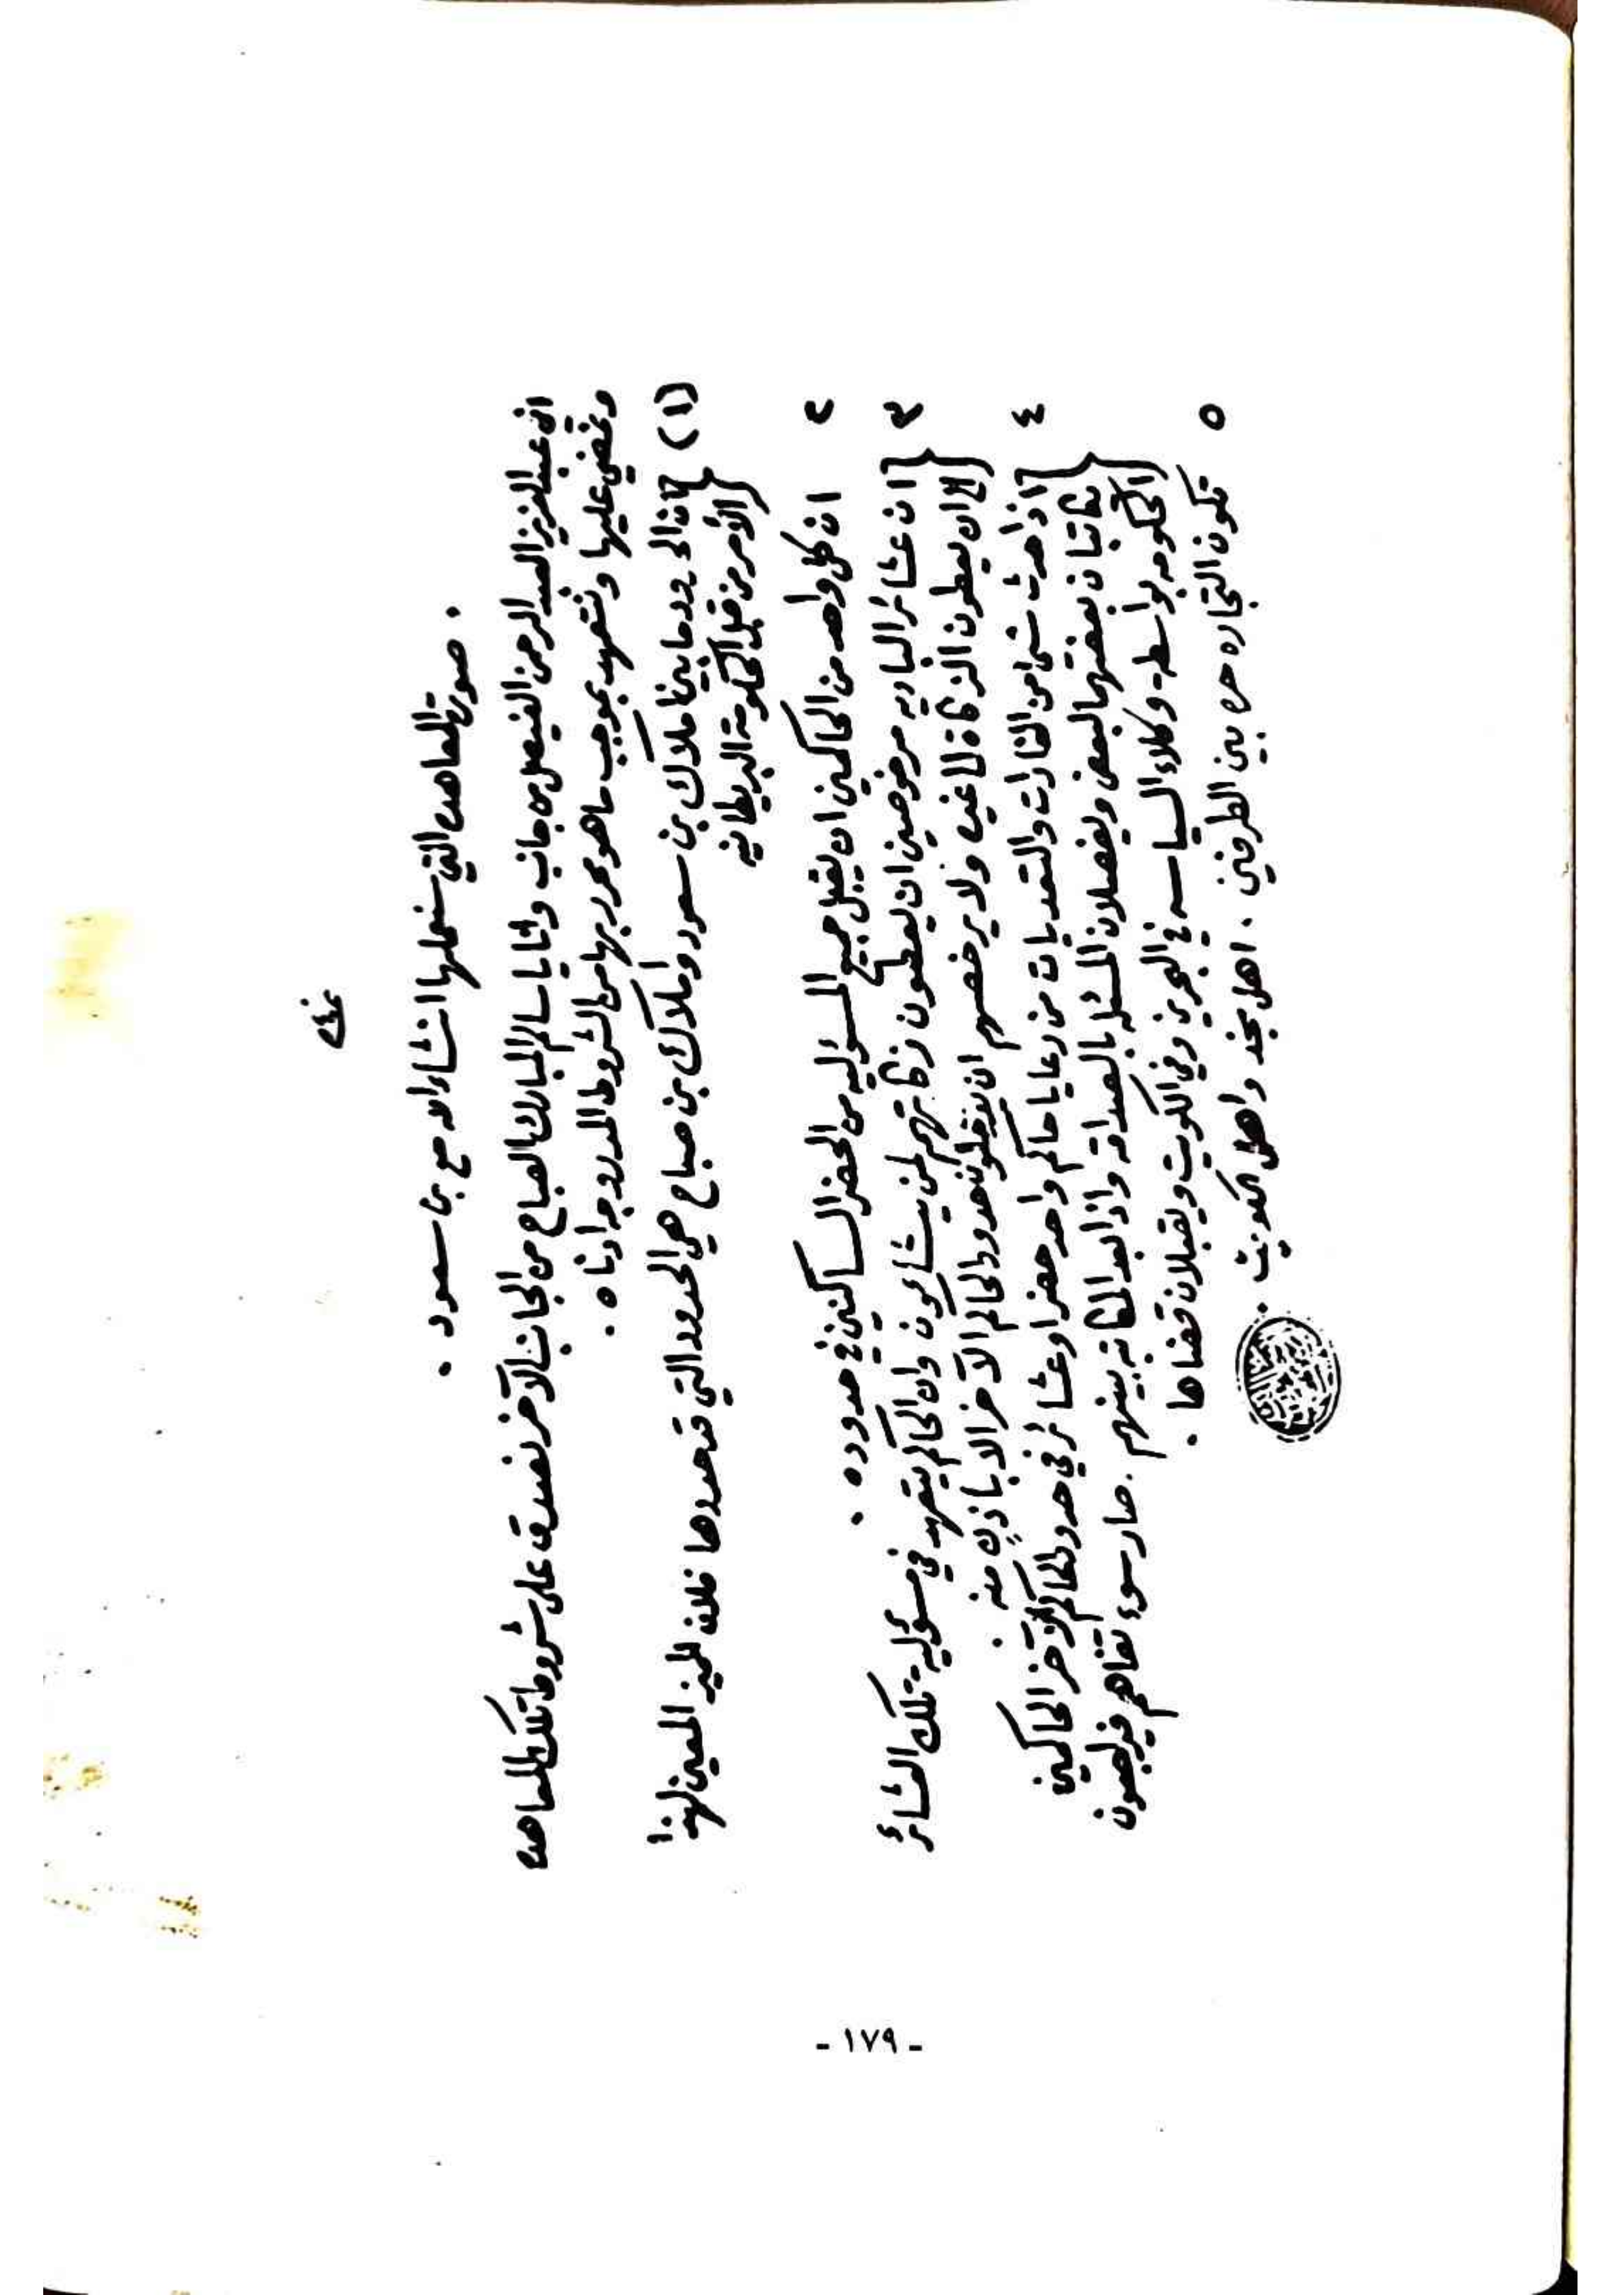 صورة المعاهده التي سنعملها انشاء الله مع بن سعود .
اني عبدالعزيز العبد الرحمن الفيصل من جانب وانا يا سالم المبارك الصباح من الجانب الآخر نصدق على شروط تلك المعاهده
ونمضي عليها ونتعهد بموجب ما هو محرر بها من الشروط المدروجه ادناه .
(١) ان الحدود ما بين املاك بن سعود واملاك بن صباح هي الحدود التي قد حددها فلان المميز المعين لهذا
الأمر من قبل الحكومة البريطانيه
٢ ان كل واحد من الحاكمين ان يقبل جميع المسؤليه من الحضر الساكنين في حدوده .
٣ ان عشائر الباديه مرخوصين ان يعطون زكاتهم لمن يشاءون وان الحاكم يتعهد في مسؤلية تلك العشائر
ان يعطون الزكاة ولا يرخصهم ان يدخلون حدود الحاكم الآخر الا باذن منه .
٤ اذا حدث شي من الغارات والتعديات من رعايا حاكم واحد حضر او عشائر في حدود الحاكم الآخر الحاكمين
يكاتبان بعضهما البعض ويفصلان المسئله بالصداقه واذا بعد المكاتبه بينهم صار سوء تفاهم فيراجعون
الحكومه بواسطة وكلاء السياسه في البحرين وفي الكويت ويقبلان قضاها .
٥ تكون التجاره حره بين الطرفين . اهل نجد واهل الكويت .
- ١٧٩ -